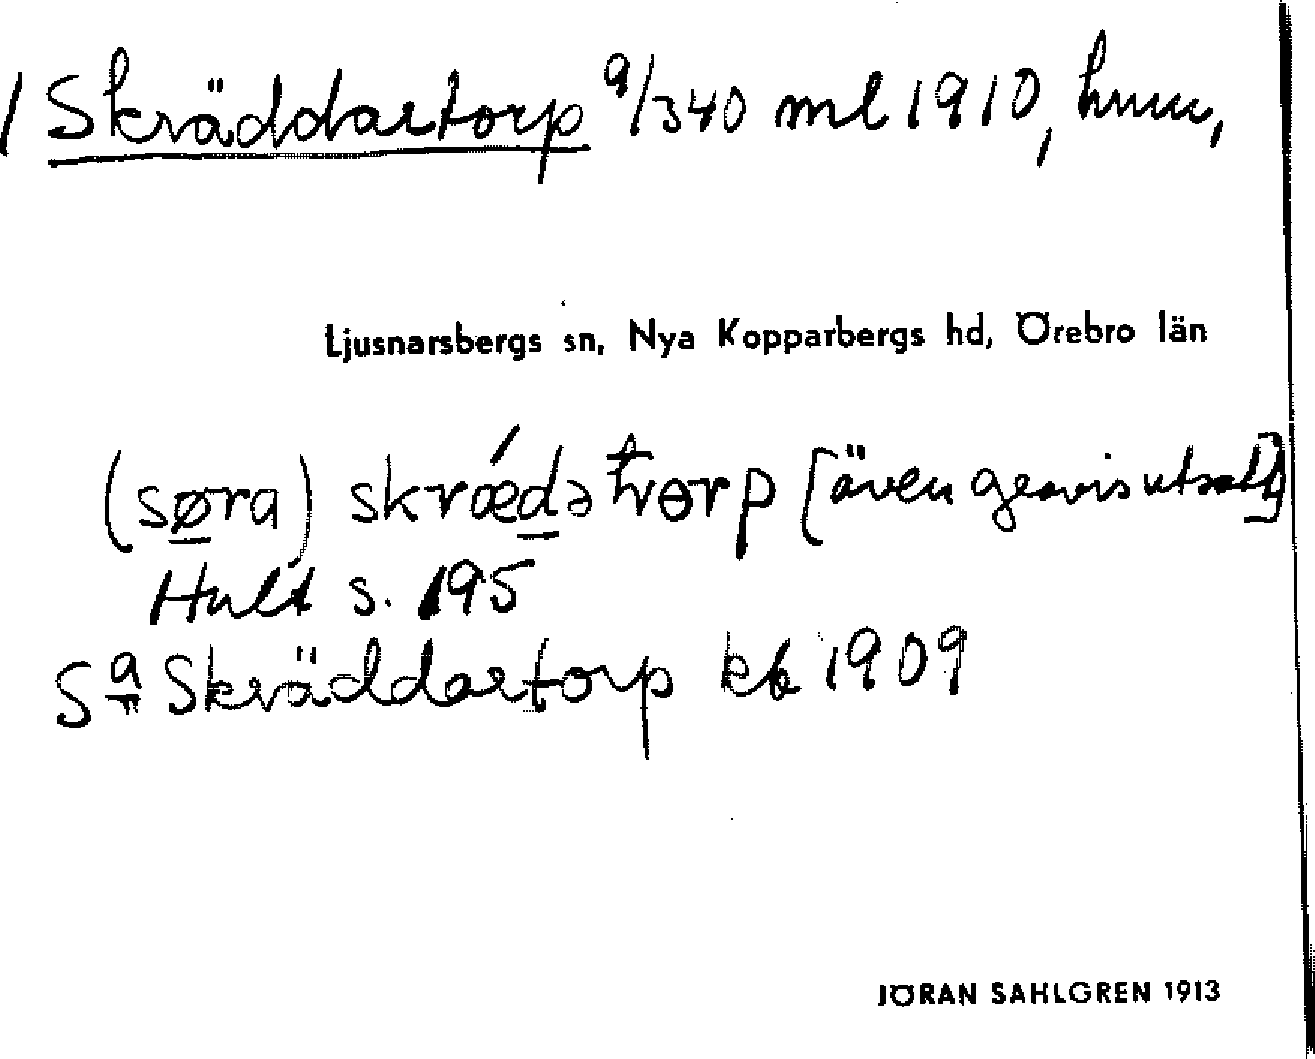 / Skräddartorp 9/340 ml 1910, hmm,
Ljusnarsbergs sn, Nya Kopparbergs hd, Örebro län
(søra) skrǽdətorp [även gravis utsatt]
Hult s. 195
Sa Skräddartorp kb 1909
JÖRAN SAHLGREN 1913